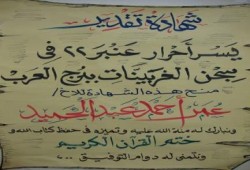 شهادة تقدير
يسر أحرار عنبر ٢٢ فى
سجن الغربينات ببرج العرب
منح هذه الشهادة للأخ /
عمر أحمد عبد الحميد
ونبارك له منة الله عليه وتميزه فى حفظ كتاب الله و
ختم القرآن الكريم
ونتمنى له دوام التوفيق ...